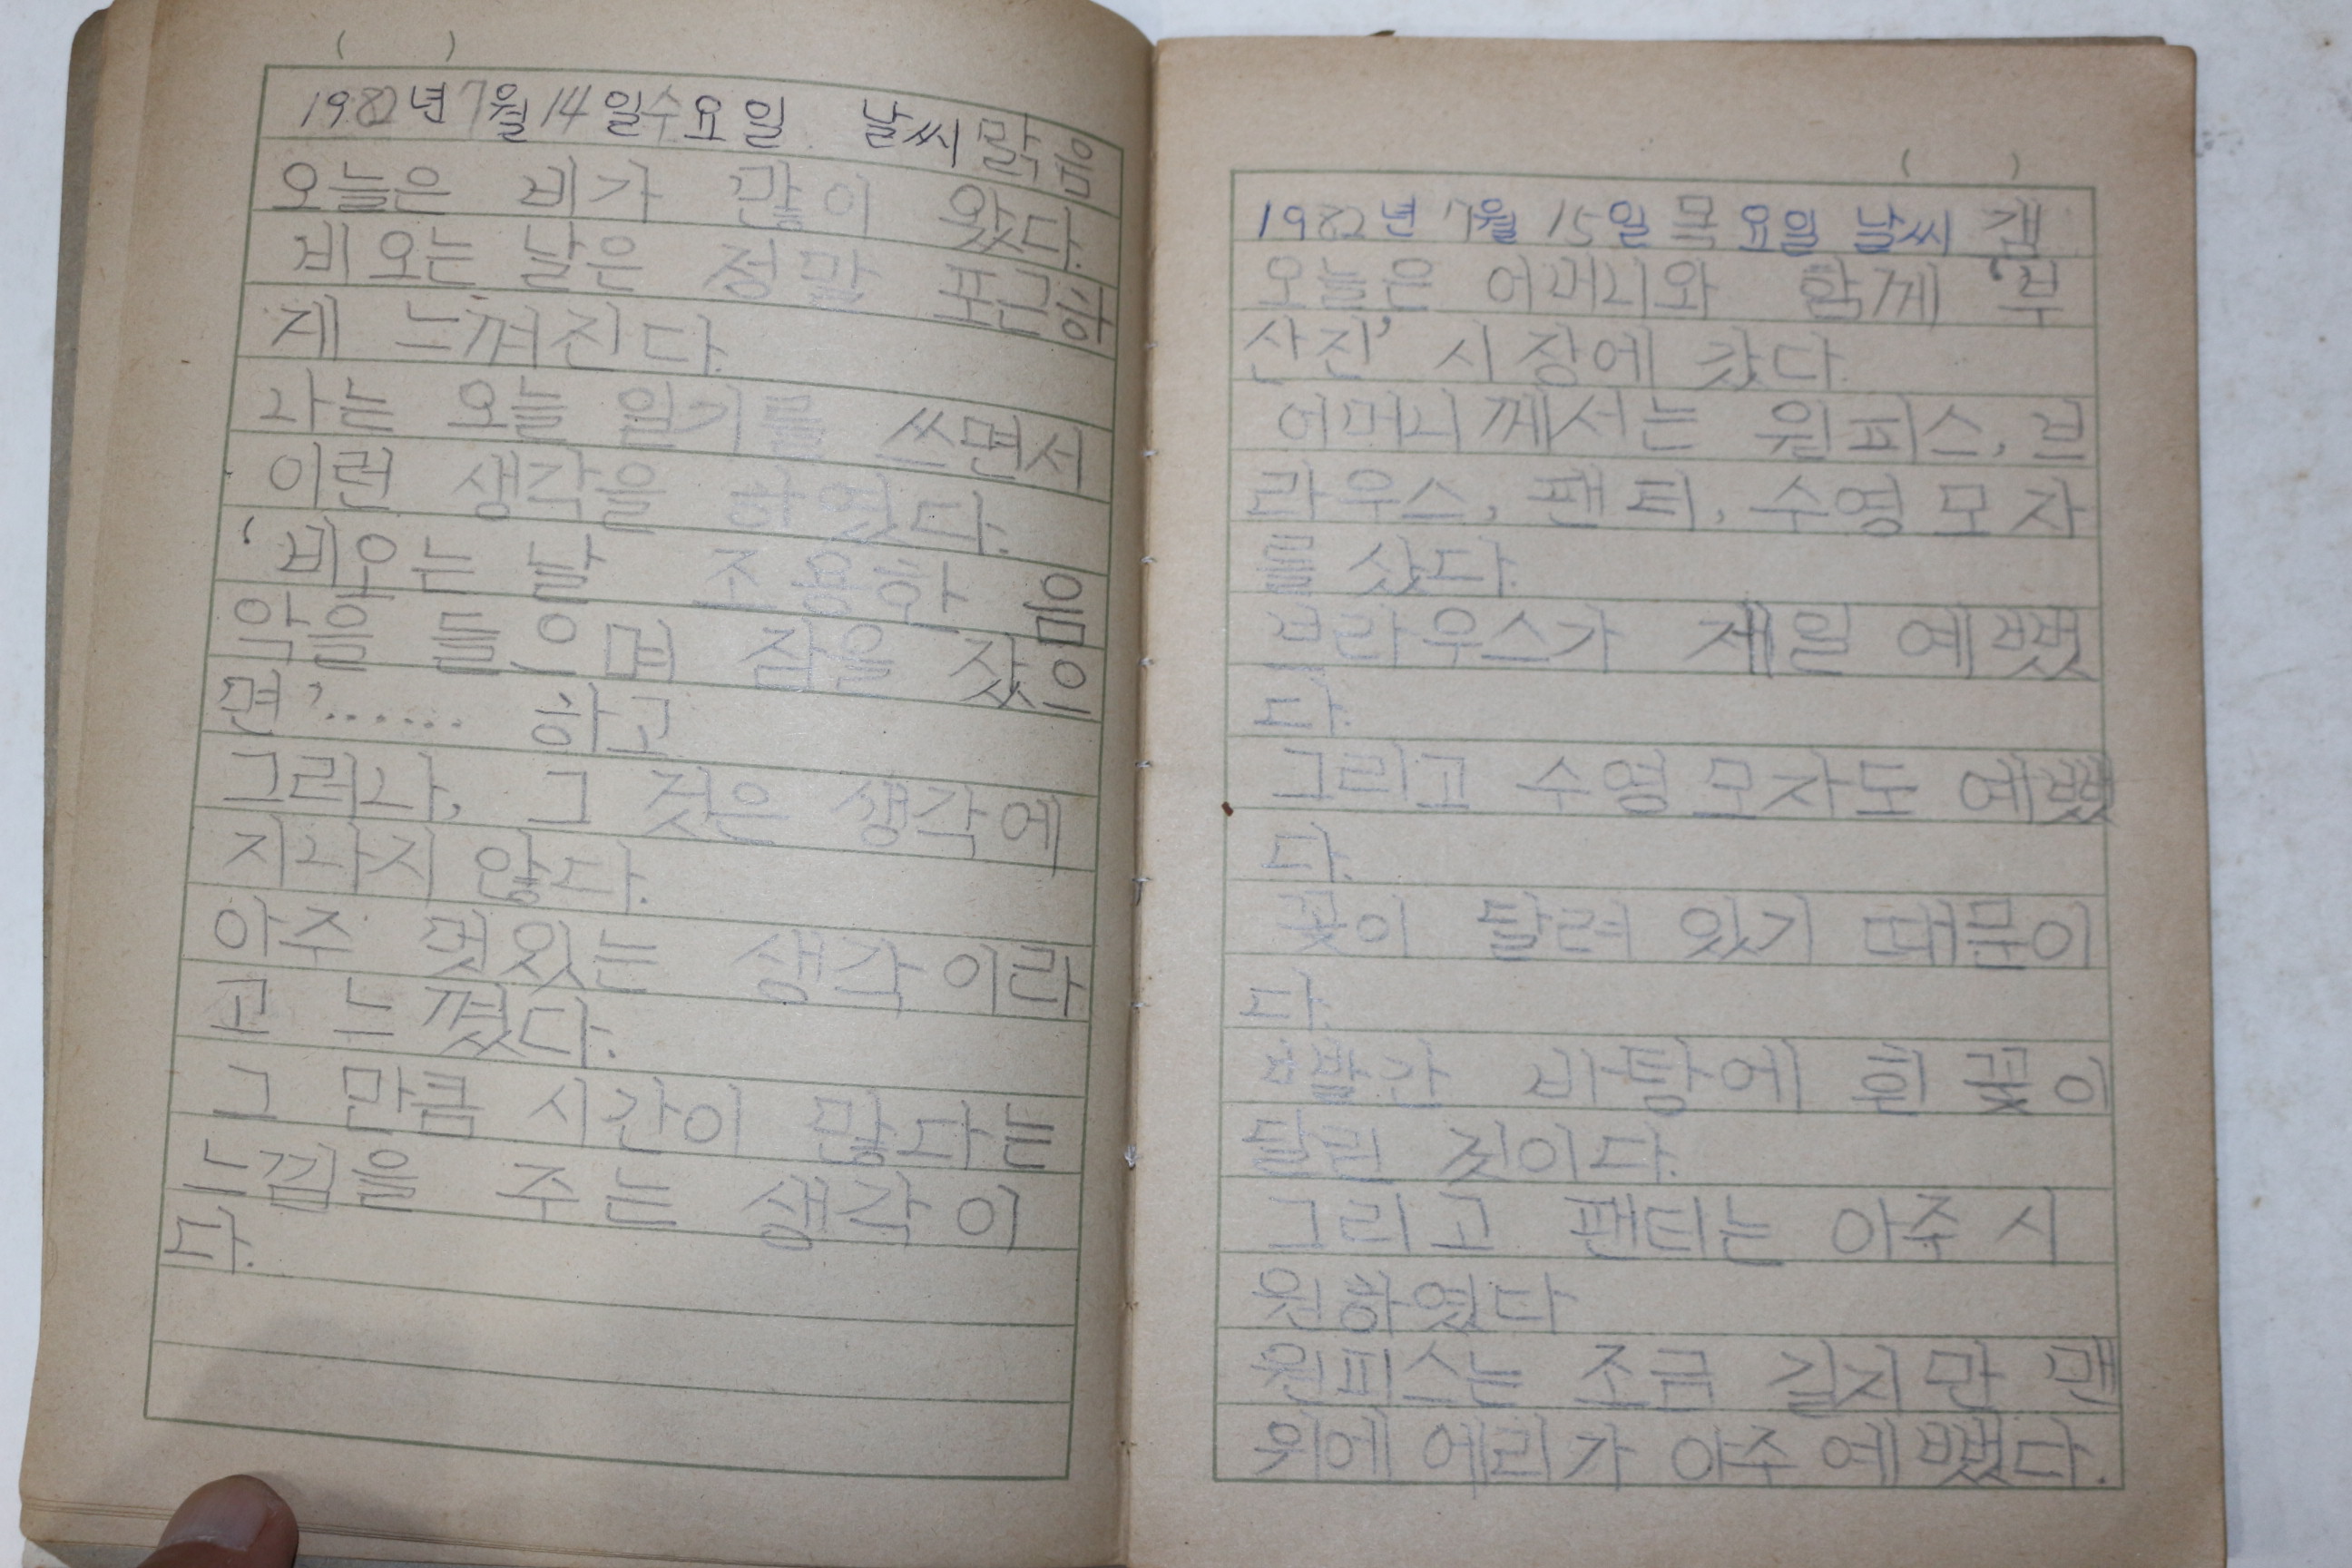 ( )
1982년 7월 14일 수요일 날씨 맑음
오늘은 비가 많이 왔다.
비오는 날은 정말 포근하
게 느껴진다.
나는 오늘 일기를 쓰면서
이런 생각을 하였다.
'비오는 날 조용한 음
악을 들으며 잠을 잤으
면'...... 하고
그러나, 그 것은 생각에
지나지 않다.
아주 멋있는 생각이라
고 느꼈다.
그 만큼 시간이 많다는
느낌을 주는 생각이
다.
( )
1982년 7월 15일 목요일 날씨 갬
오늘은 어머니와 함께 '부
산진' 시장에 갔다.
어머니께서는 원피스, 브
라우스, 팬티, 수영모자
를 샀다.
브라우스가 제일 예뻤
다.
그리고 수영모자도 예뻤
다.
꽃이 달려 있기 때문이
다.
빨간 바탕에 흰 꽃이
달린 것이다.
그리고 팬티는 아주 시
원하였다
원피스는 조금 길지만 맨
위에 에리가 아주 예뻤다.